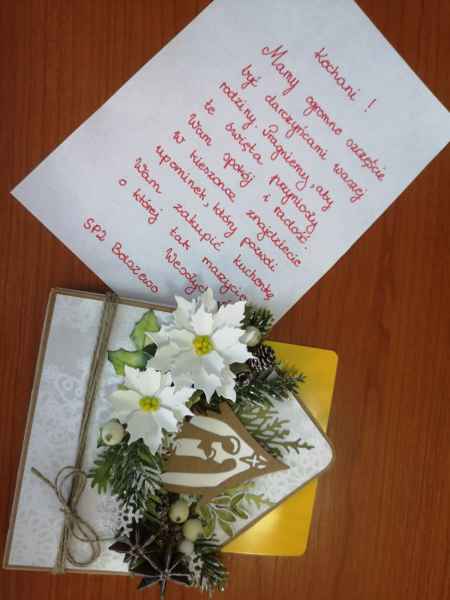 Kochani !
Mamy ogromne szczęście
być darczyńcami waszej
rodziny. Pragniemy, aby
te święta przyniosły
Wam spokój i radość.
W kieszonce znajdziecie
upominek, który pozwoli
Wam zakupić kuchenkę
o której tak marzycie
Wesołych
SP2 Bolszewo